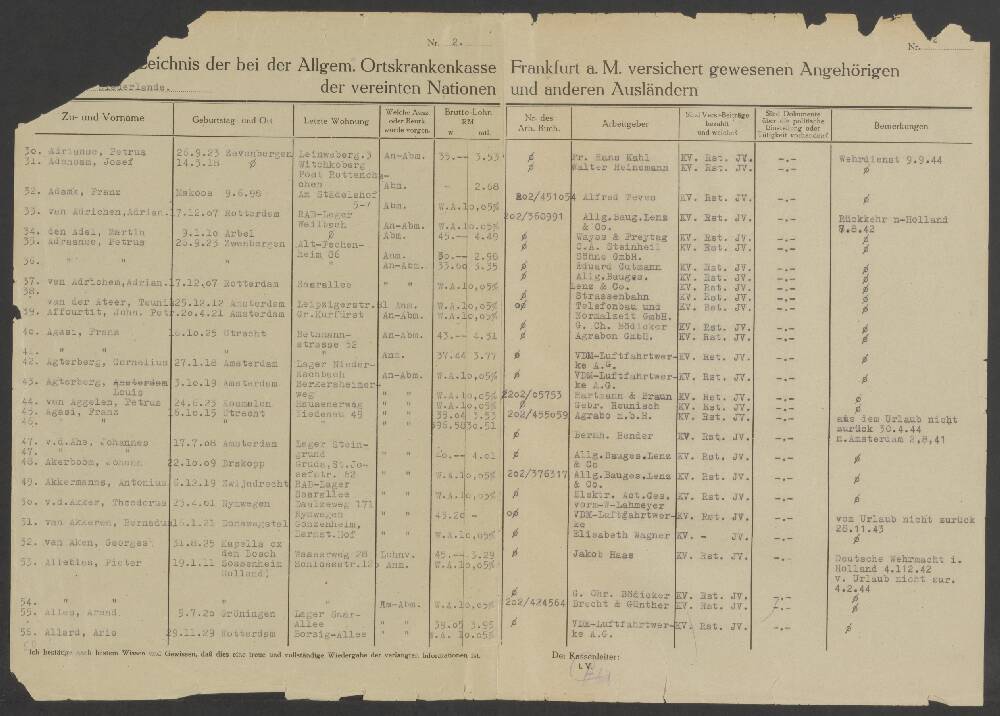 Nr. 2.
Nr. 2
zeichnis der bei der Allgem. Ortskrankenkasse Frankfurt a. M. versichert gewesenen Angehörigen
Niederlande. der vereinten Nationen und anderen Ausländern
Zu- und Vorname Geburtstag und Ort Letzte Wohnung Welche Ausw. oder Beurk. wurde vorgen. Brutto-Lohn RM w. mtl. Nr. des Arb. Buch. Arbeitgeber Sind Vers.-Beiträge bezahlt und welche? Sind Dokumente über die politische Einstellung oder Tätigkeit vorhanden? Bemerkungen
30. Adrianse, Petrus 26.9.23 Zevenbergen Leinweberg.3 An-Abm. 35.-- 3.53 ø Fr. Hans Kahl KV. Rst. JV. -.- Wehrdienst 9.9.44
31. Adanasm, Josef 14.3.18 ø Witchkoberg ø Walter Heinemann KV. Rst. JV. -.- ø
Post Rottench-
chen Abm. - 2.68
32. Adamk, Franz Makoos 9.6.98 Am Städelshof 202/451054 Alfred Teves KV. Rst. JV. -.- ø
5-7 Abm. W.A.10,05%
33. van Adrichen, Adrian. 17.12.07 Rotterdam RAD-Lager 202/360991 Allg.Baug.Lenz KV. Rst. JV. -.- Rückkehr n-Holland
Weilbach An-Abm. W.A.10,05% & Co. 7.8.42
34. den Adel, Martin 9.1.10 Arbel ø Abm. 45.-- 4.49 ø Wayss & Freytag KV. Rst. JV. -.- ø
35. Adreanse, Petrus 26.9.23 Zwenbergen Alt-Fechen- ø C.A. Steinheil KV. Rst. JV. -.- ø
heim 86 Anm. 30.-- 2.98 Söhne GmbH.
36. " " " " An-Abm. 33.60 3.35 ø Eduard Gutmann KV. Rst. JV. -.- ø
ø Allg.Bauges. KV. Rst. JV. -.- ø
37. van Adrichem, Adrian. 17.12.07 Rotterdam Saarallee " " W.A.10,05% Lenz & Co. KV. Rst. JV. -.- ø
38. ø Strassenbahn KV. Rst. JV. -.- ø
van der Ateer, Teuni 25.12.12 Amsterdam Leipzigerstr.31 Anm. W.A.10,05% oø Telefonbau und KV. Rst. JV. -.- ø
39. Affourtit, John. Petr. 20.4.21 Amsterdam Gr.Kurfürst An-Abm. W.A.10,05% Normalzeit GmbH.
ø G. Ch. Bödicker KV. Rst. JV. -.- ø
40. Agasi, Franz 16.10.25 Utracht Bethmann- An-Abm. 43.-- 4.31 ø Agrabon GmbH. KV. Rst. JV. -.- ø
strasse 52
41. " " " Anm. 37.44 3.77 ø VDM-Luftfahrtwer- KV. Rst. JV. -.- ø
42. Agterberg, Cornelius 27.1.18 Amsterdam Lager Nieder- ke A.G.
Eschbach An-Abm. W.A.10,05% ø VDM-Luftfahrtwer- KV. Rst. JV. -.- ø
43. Agtorberg, Amsterdam 3.10.19 Amsterdam Berkersheimer- ke A.G.
Louis weg " " W.A.10,05% 2202/05753 Hartmann & Braun KV. Rst. JV. -.- ø
44. van Aggelen, Petrus 24.6.23 Rosmalen Hausenerweg " " W.A.10,05% ø Gebr. Heunisch KV. Rst. JV. -.- ø
45. Agasi, Franz 16.10.15 Utrecht Riedenau 49 " " 39.64 3.53 202/455059 Agrabo m.b.H. KV. Rst. JV. -.- aus dem Urlaub nicht
46. " " " " " 396.58 30.51 zurück 30.4.44
ø Bernh. Hender KV. Rst. JV. -.- n.Amsterdam 2.8.41
47. v.d.Ahe, Johannes 17.7.08 Amsterdam Lager Stein-
47. " " grund " " 40.-- 4.01 ø Allg.Bauges.Lenz KV. Rst. JV. -.- ø
48. Akerboom, Johann 22.10.09 Erskopp Grude,St.Jo- & Co
sefstr. 62 " " W.A.10,05% 202/376317 Allg.Bauges.Lenz KV. Rst. JV. -.- ø
49. Akkermanns, Antonius 6.12.19 Zwijndrecht RAD-Lager & Co.
Saarallee " " W.A.10,05% ø Elektr. Act.Ges. KV. Rst. JV. -.- ø
50. v.d.Akker, Theodorus 23.4.01 Nymwegen Daulzeweg 171 vorm-W-Lahmeyer
Nymwegen " " 43.20 - oø VDM-Luftfahrtwer- KV. Rst. JV. -.- vom Urlaub nicht zurück
51. van Akkeren, Bernadus 16.1.21 Donewagstel Gonzenheim, ke 28.11.43
Darmst.Hof " " W.A.10,05% ø Elisabeth Wagner KV. - JV. -.- ø
52. van Aken, Georges 31.8.25 Kapella cx
den Bosch Wasserweg 28 Lohnv. 45.-- 3.29 ø Jakob Haas KV. Rst. JV. -.- Deutsche Wehrmacht i.
53. Alletles, Pieter 19.1.11 Sossenheim Schlossstr.125 Anm. W.A.10,05% Holland 4.112.42
Holland) v. Urlaub nicht zur.
4.2.44
54. " " " " Am-Abm. W.A.10,05% ø G. Chr. Bödicker KV. Rst. JV. -.- ø
55. Alles, Arend. 5.7.20 Gröningen Lager Saar- 202/424564 Brecht & Günther KV. Rst. JV. -.- ø
Allee " " 39.05 3.95 ø VDM-Luftfahrtwer- KV. Rst. JV. -.- ø
56. Allard, Arie 29.11.29 Rotterdam Borsig-Allee " " W.A. 10.05% ke A.G.
Ich bestätige nach bestem Wissen und Gewissen, daß dies eine treue und vollständige Wiedergabe der verlangten Informationen ist. Der Kassenleiter:
i. V.